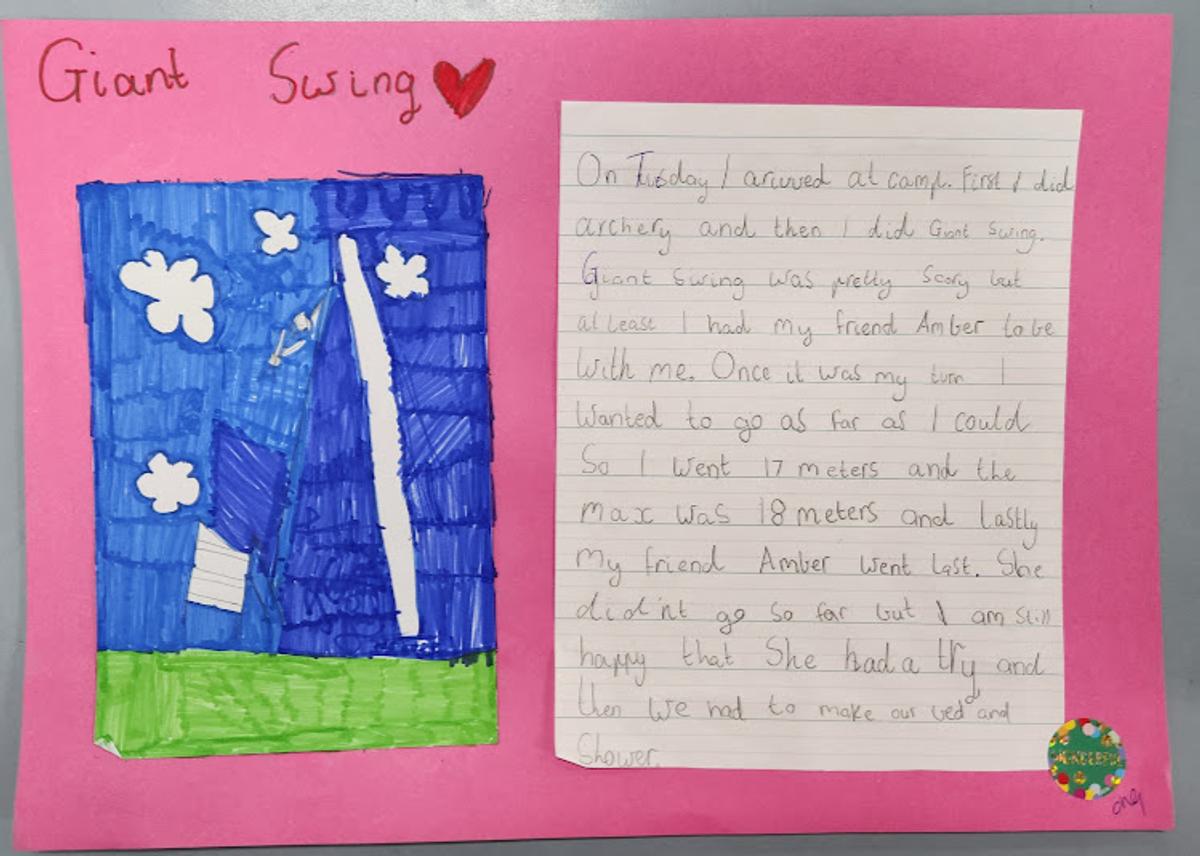 Giant Swing
On Tusday I arived at camp. First I did
archery and then I did Giant Swing.
Giant Swing was pretty Scary but
at least I had my friend Amber to be
With me. Once it was my turn I
Wanted to go as far as I could
So I Went 17 meters and the
max was 18 meters and lastly
my friend Amber went last. She
did'nt go so far but I am still
happy that She had a try and
then we had to make our bed and
Shower.
WONDERFUL